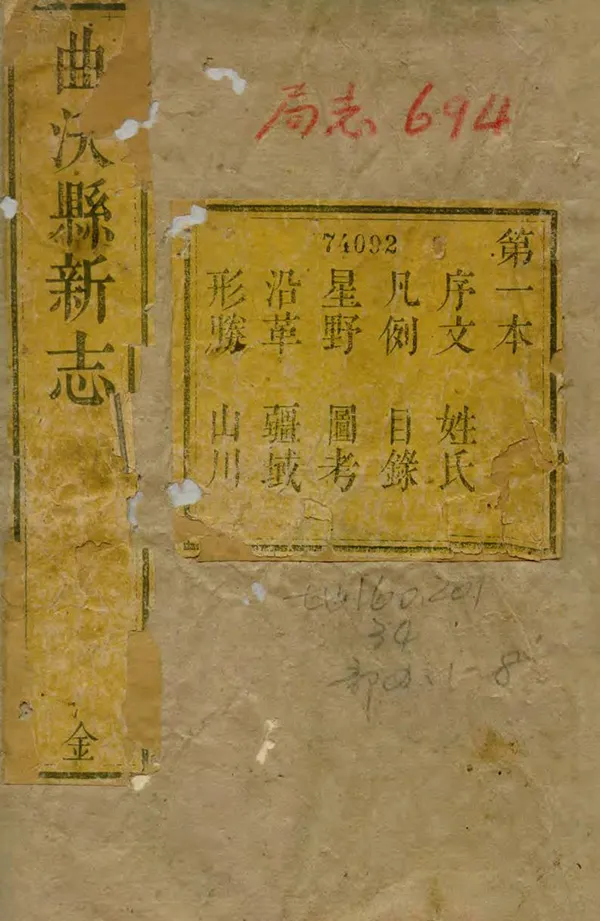 曲沃縣新志
金
局志 694
74092
第一本
序文 姓氏
凡例 目錄
星野 圖考
沿革 疆域
形勝 山川
160.201
34
1-8